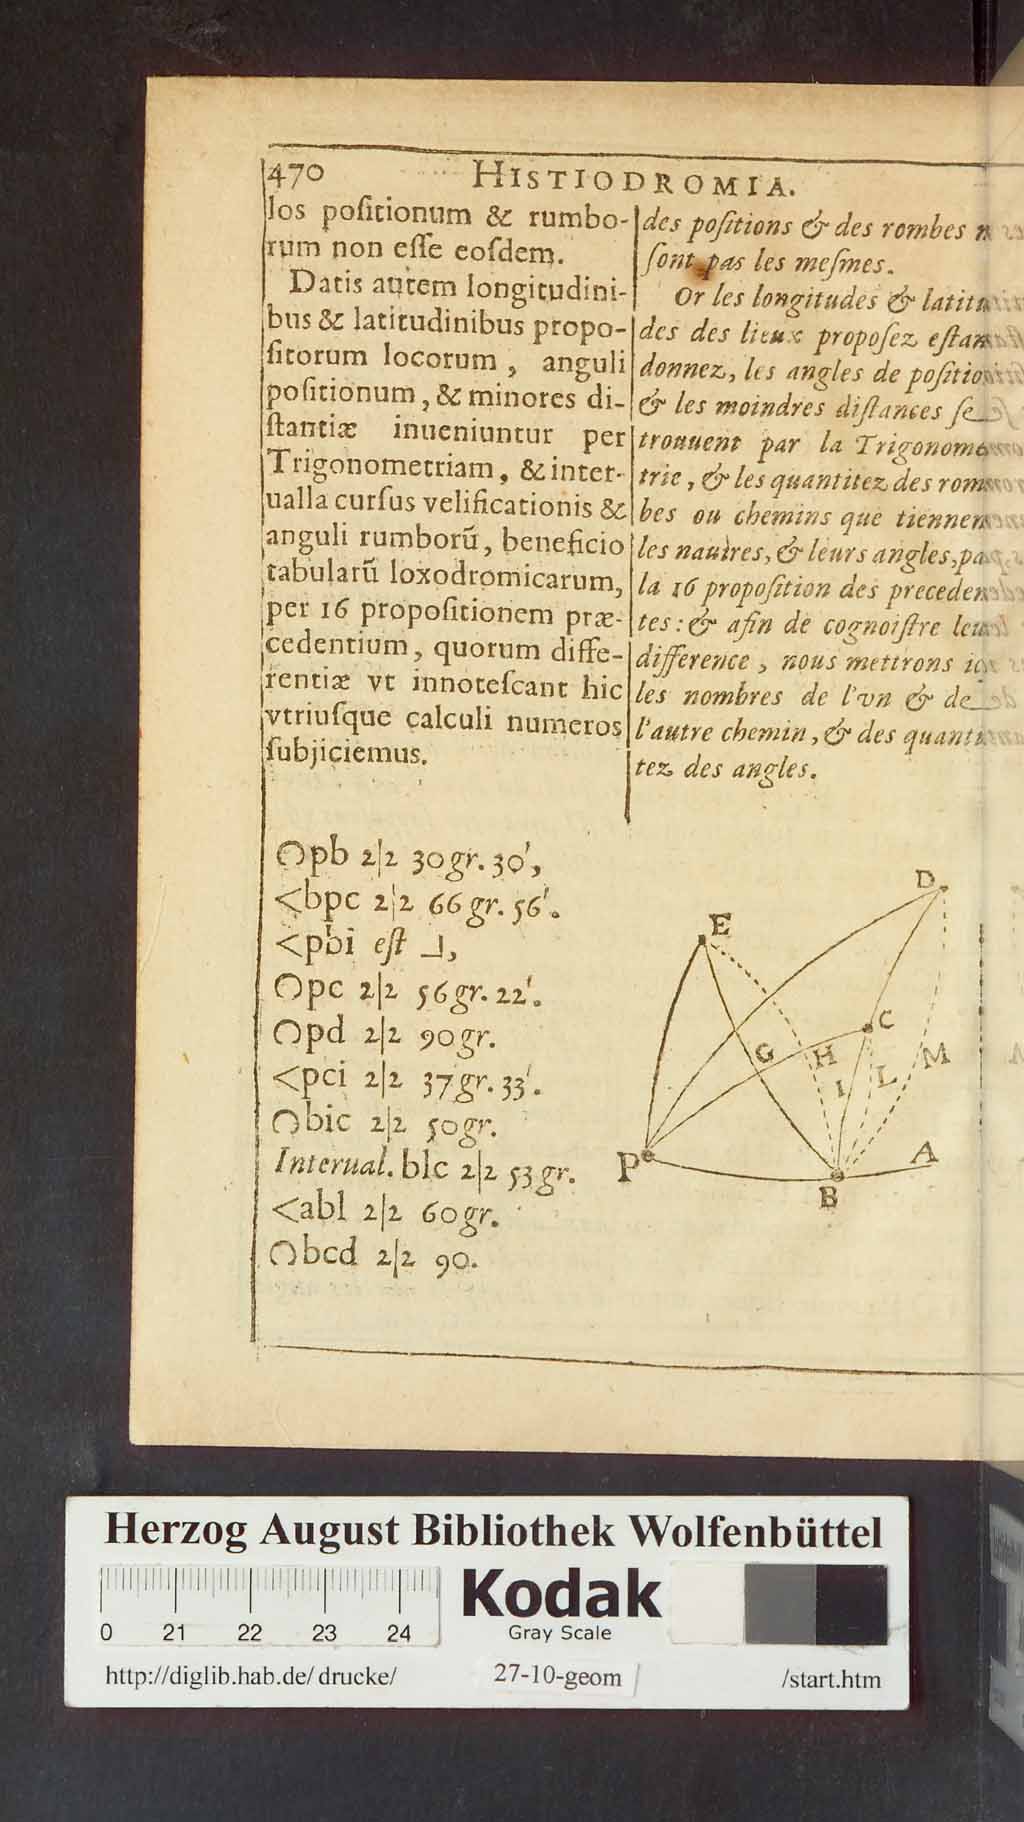 470
HISTIODROMIA.
los poſitionum & rumbo-
rum non eſſe eoſdem.
Datis autem longitudini-
bus & latitudinibus propo-
ſitorum locorum, anguli
poſitionum, & minores di-
ſtantiæ inueniuntur per
Trigonometriam, & inter-
ualla curſus velificationis &
anguli rumborū, beneficio
tabularū loxodromicarum,
per 16 propoſitionem præ-
cedentium, quorum diffe-
rentiæ vt innoteſcant hic
vtriuſque calculi numeros
ſubjiciemus.
des poſitions & des rombes
ſont pas les meſmes.
Or les longitudes & latitu
des des lieux propoſez eſtan
donnez, les angles de poſitio
& les moindres diſtances ſe
trouuent par la Trigonome
trie, & les quantitez des rom
bes ou chemins que tiennen
les nauires, & leurs angles, pa
la 16 propoſition des preceden
tes: & afin de cognoiſtre leu
difference, nous mettrons ic
les nombres de l'vn & de
l'autre chemin, & des quanti
tez des angles.
◠pb 2|2 30gr. 30′,
<bpc 2|2 66gr. 56′.
<pbi eſt ⅃,
◠pc 2|2 56gr. 22′.
◠pd 2|2 90gr.
<pci 2|2 37gr. 33′.
◠bic 2|2 50gr.
Interual. blc 2|2 53gr.
<abl 2|2 60gr.
◠bcd 2|2 90.
D
E
C
G
H
I
L
M
P
A
B
Herzog August Bibliothek Wolfenbüttel
0 21 22 23 24
Kodak
Gray Scale
http://diglib.hab.de/ drucke/
27-10-geom
/start.htm